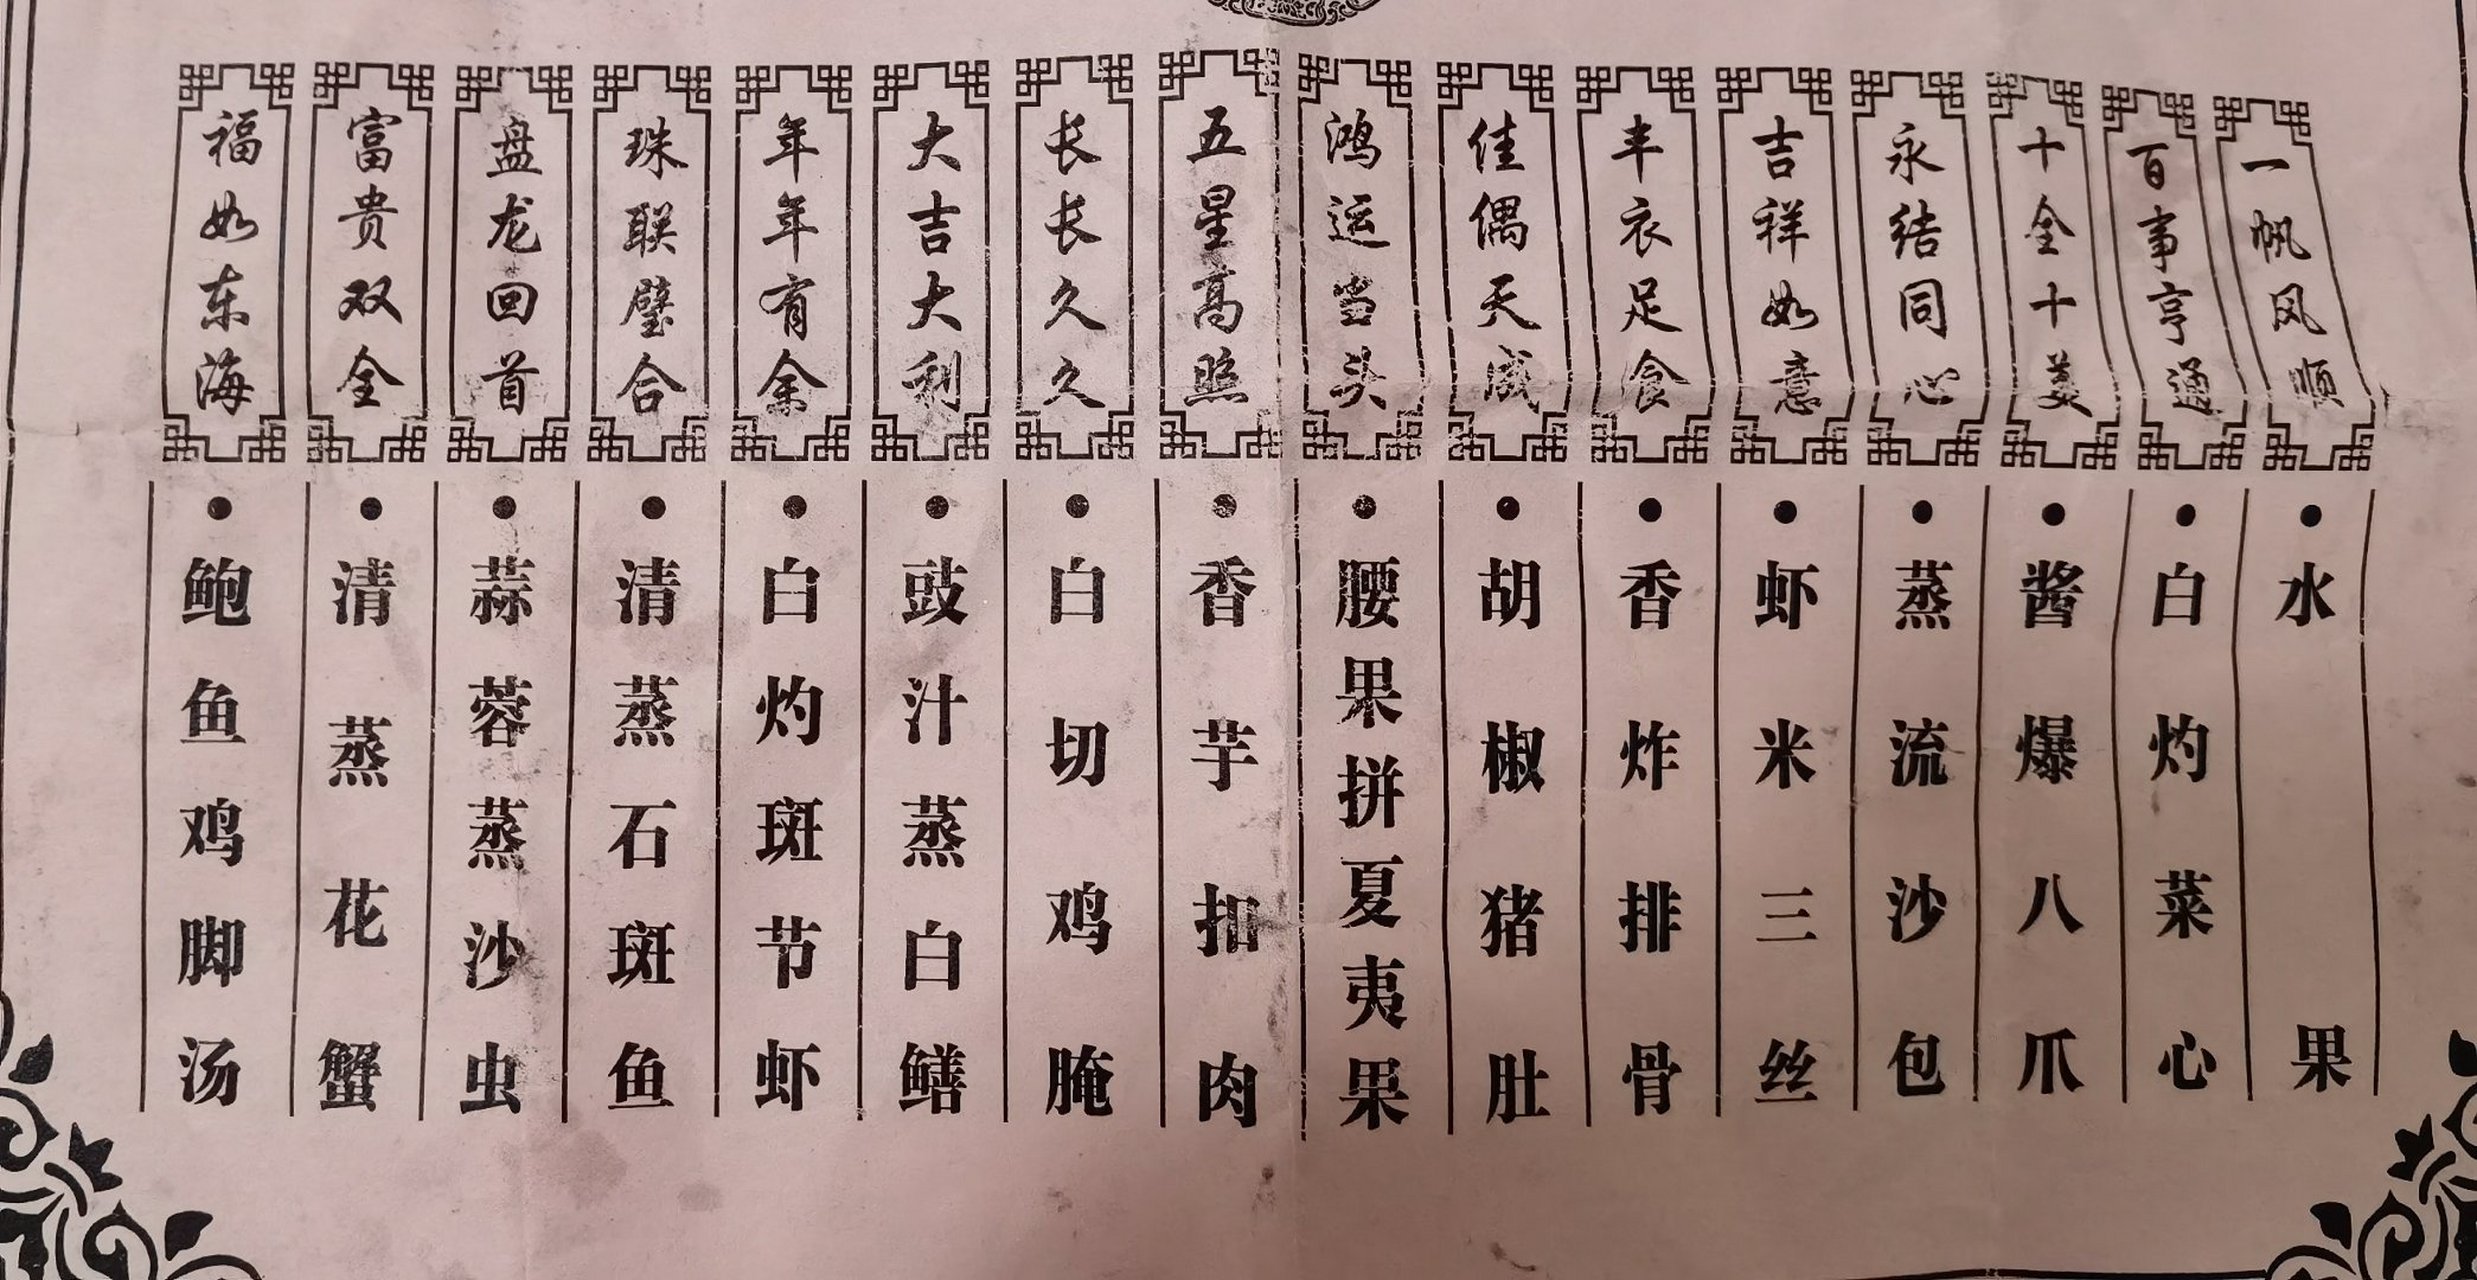 福如东海
鲍鱼鸡脚汤
富贵双全
清蒸花蟹
盘龙回首
蒜蓉蒸沙虫
珠联璧合
清蒸石斑鱼
年年有余
白灼斑节虾
大吉大利
豉汁蒸白鳝
长长久久
白切鸡腌
五星高照
香芋扣肉
鸿运当头
腰果拼夏夷果
佳偶天成
胡椒猪肚
丰衣足食
香炸排骨
吉祥如意
虾米三丝
永结同心
蒸流沙包
十全十美
酱爆八爪
百事亨通
白灼菜心
一帆风顺
水果